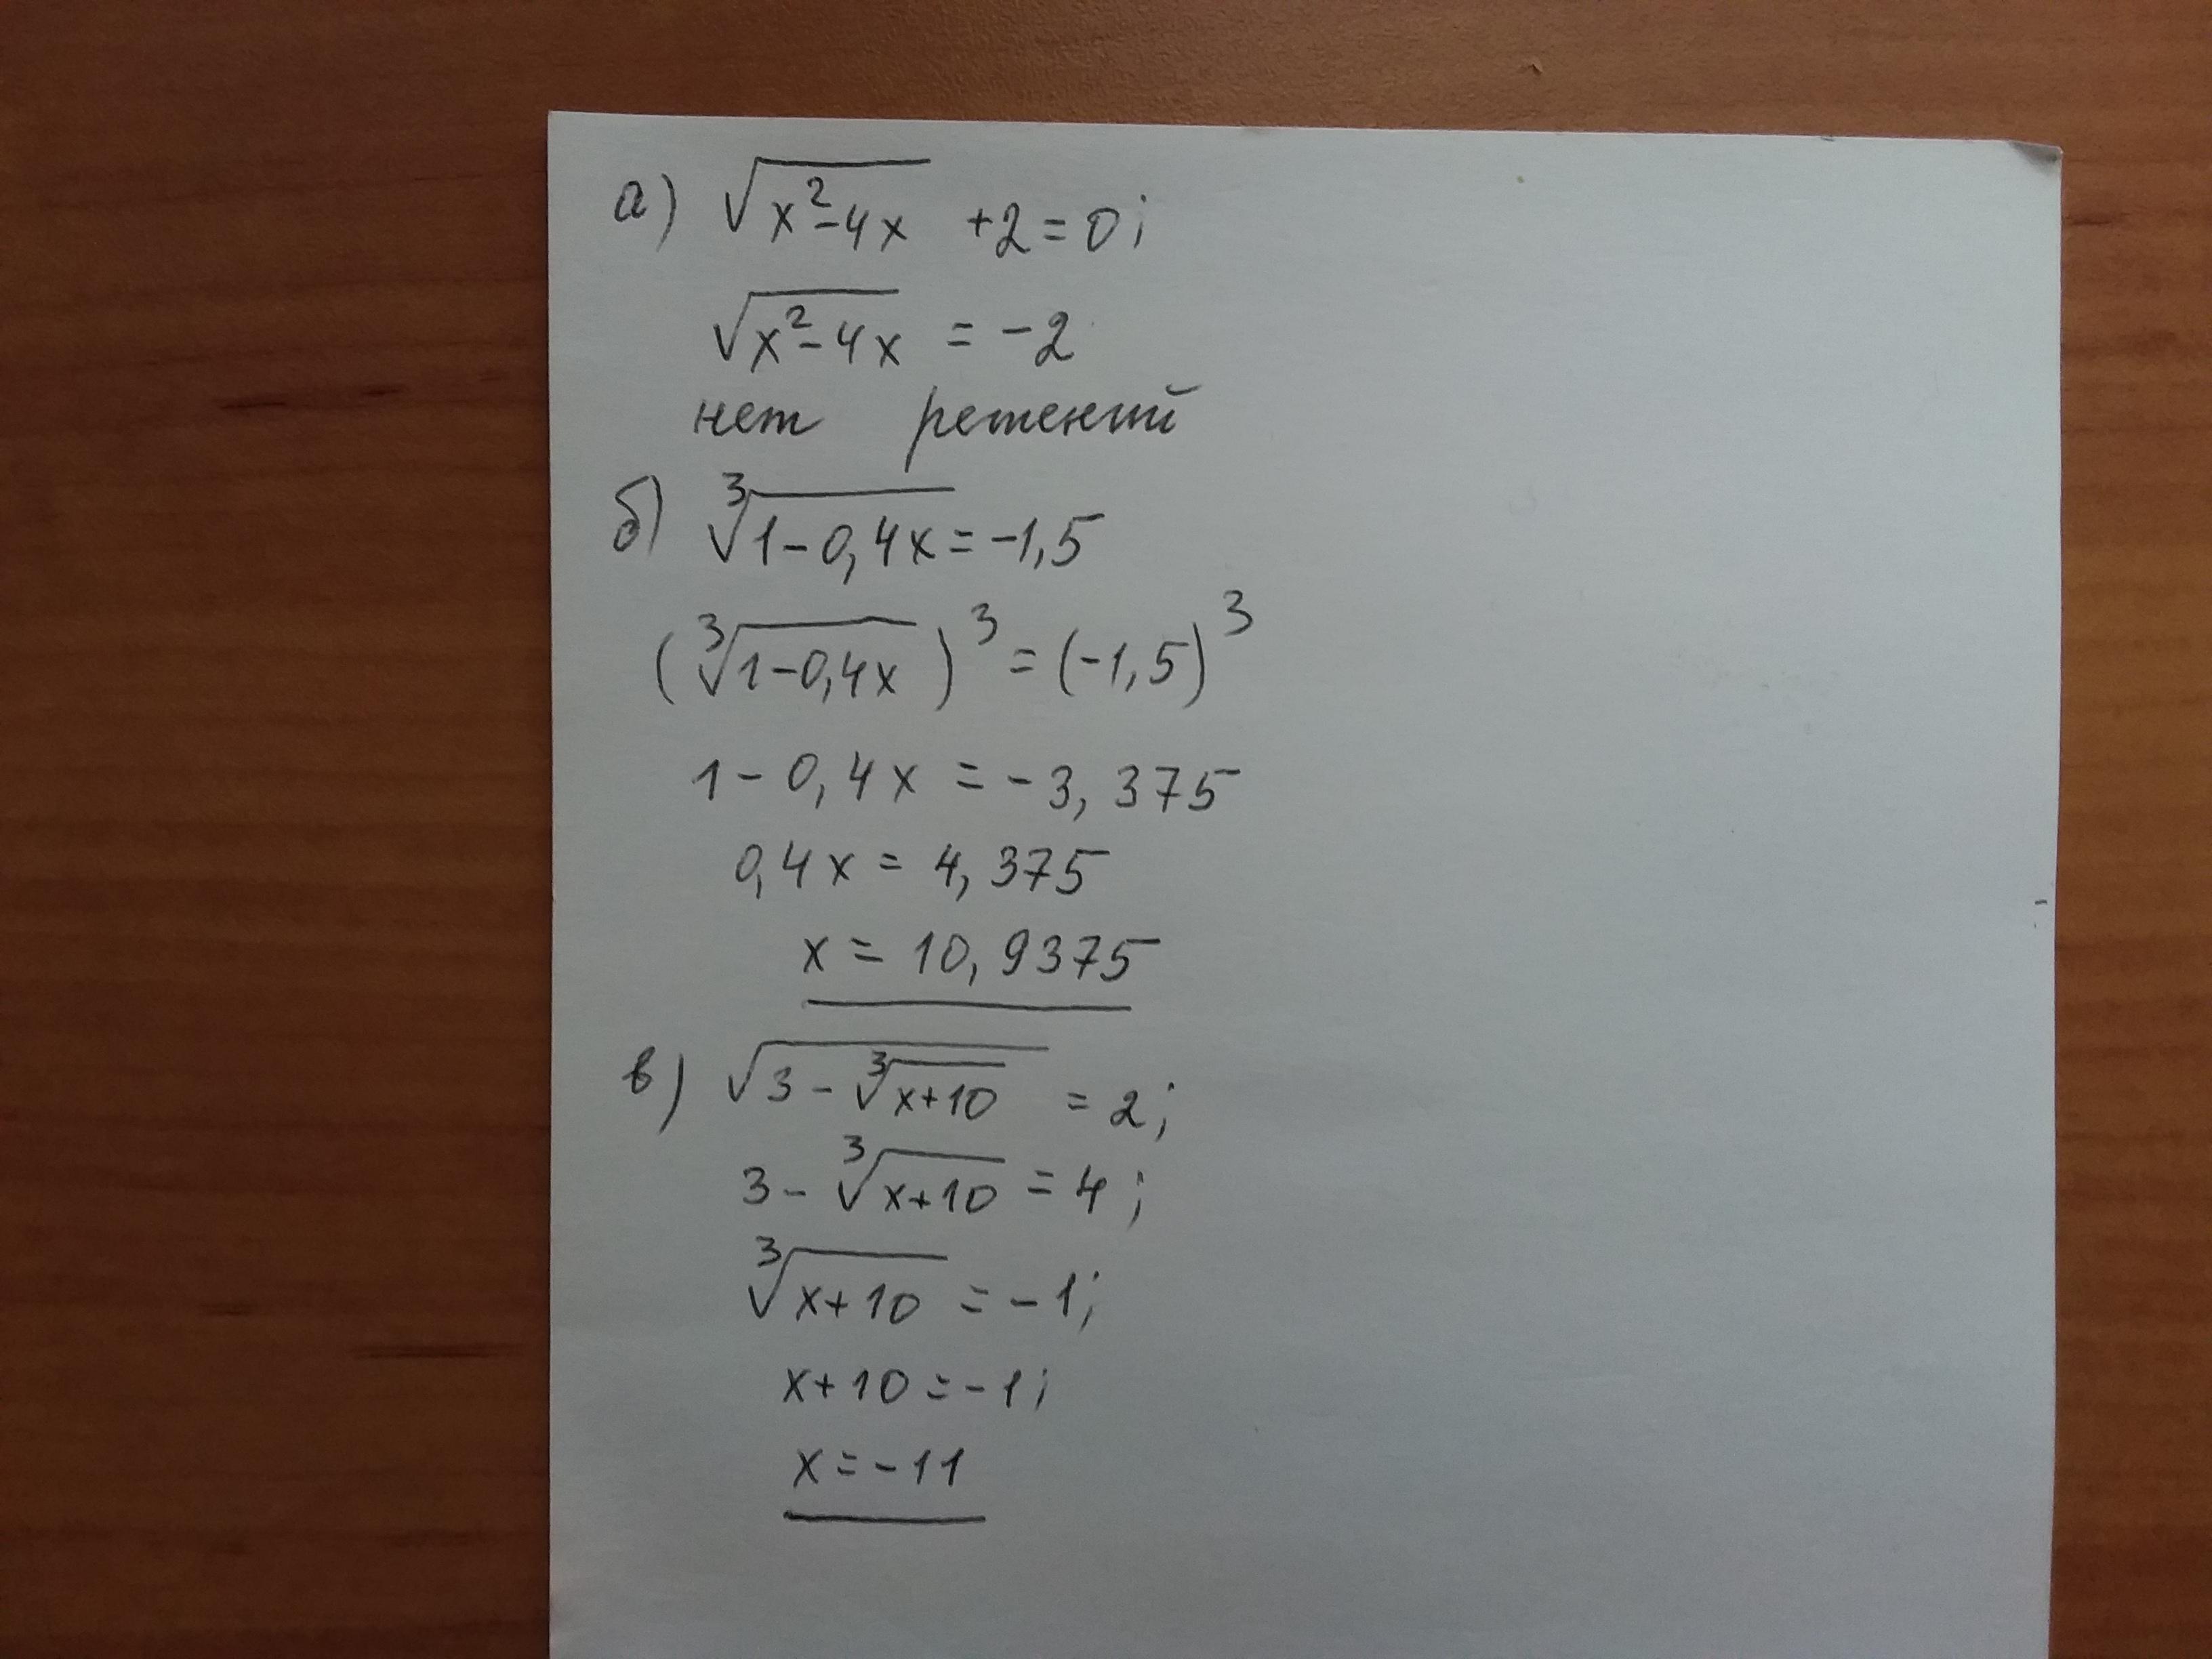 а) √(x²-4x) +2=0;
√(x²-4x) = -2
нет решений
б) ∛(1-0,4x)=-1,5
(∛(1-0,4x))³=(-1,5)³
1-0,4x=-3,375
0,4x=4,375
x=10,9375
в) √(3-∛(x+10)) =2;
3-∛(x+10)=4;
∛(x+10)=-1;
x+10=-1;
x=-11